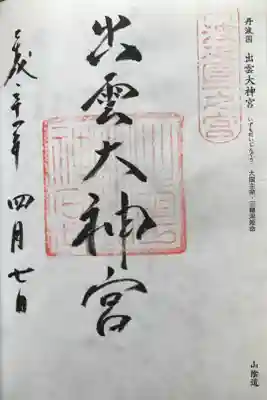 丹波國 出雲大神宮 いずもだいじんぐう 大国主命、三穂津姫命
出雲大神宮
平成二十一年 四月七日
山陰道